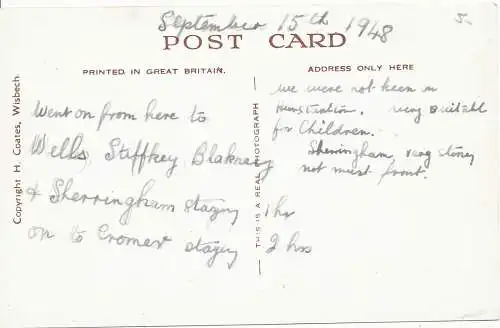 September 15th 1948
5-
POST CARD
PRINTED IN GREAT BRITAIN.
ADDRESS ONLY HERE
Copyright H. Coates, Wisbech.
THIS IS A REAL PHOTOGRAPH
Went on from here to
Wells, Stiffkey, Blakney
& Sherringham staying 1 hr
on to Cromer staying 2 hrs
we were not keen on
Hunstanton, very suitabl
for Children.
Sherringham very stoney
not must front.